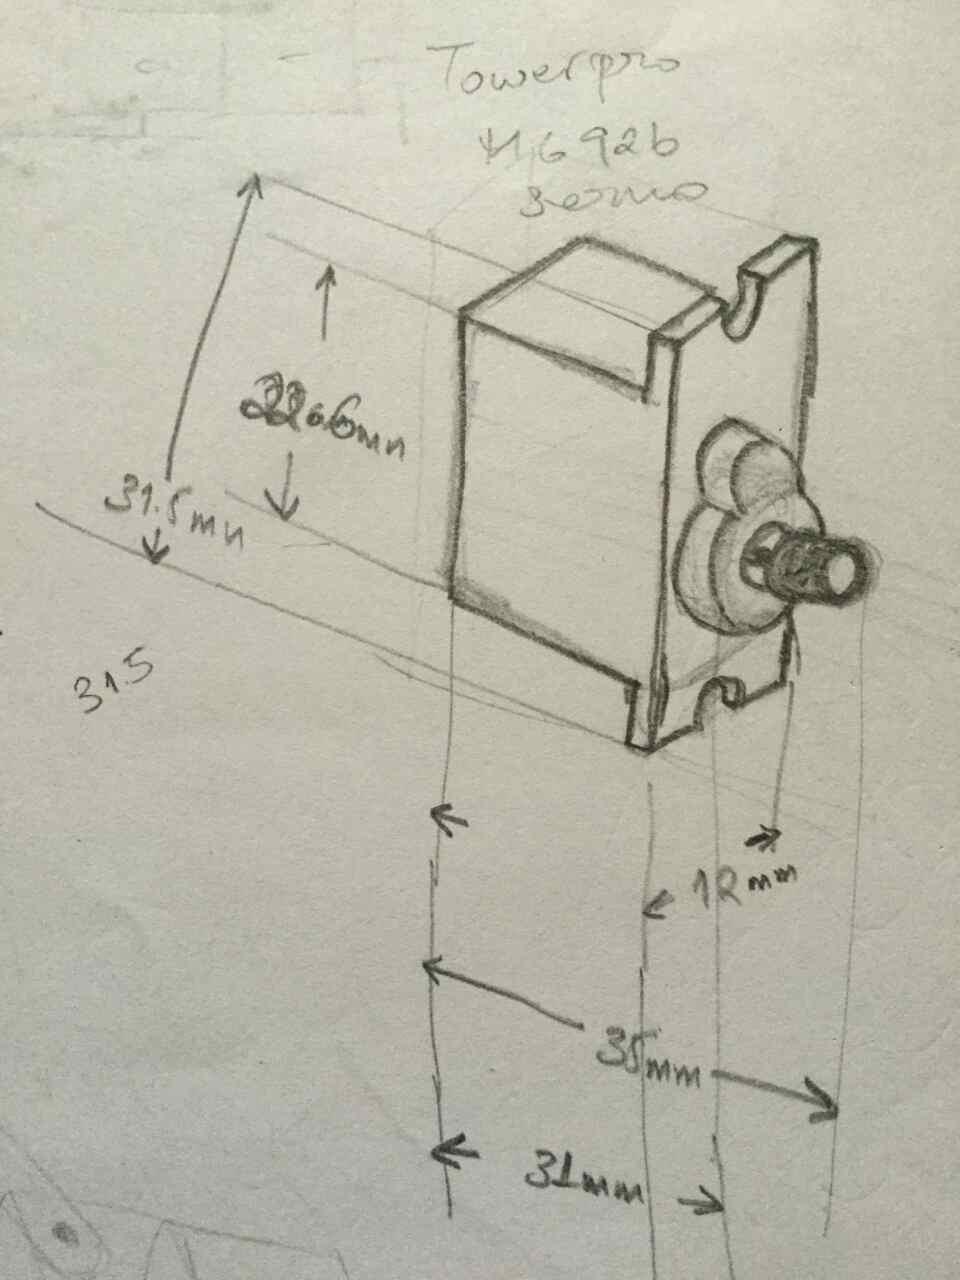 Towerpro
MG92b
servo
22.6mm
31.5mm
31.5
12mm
35mm
31mm